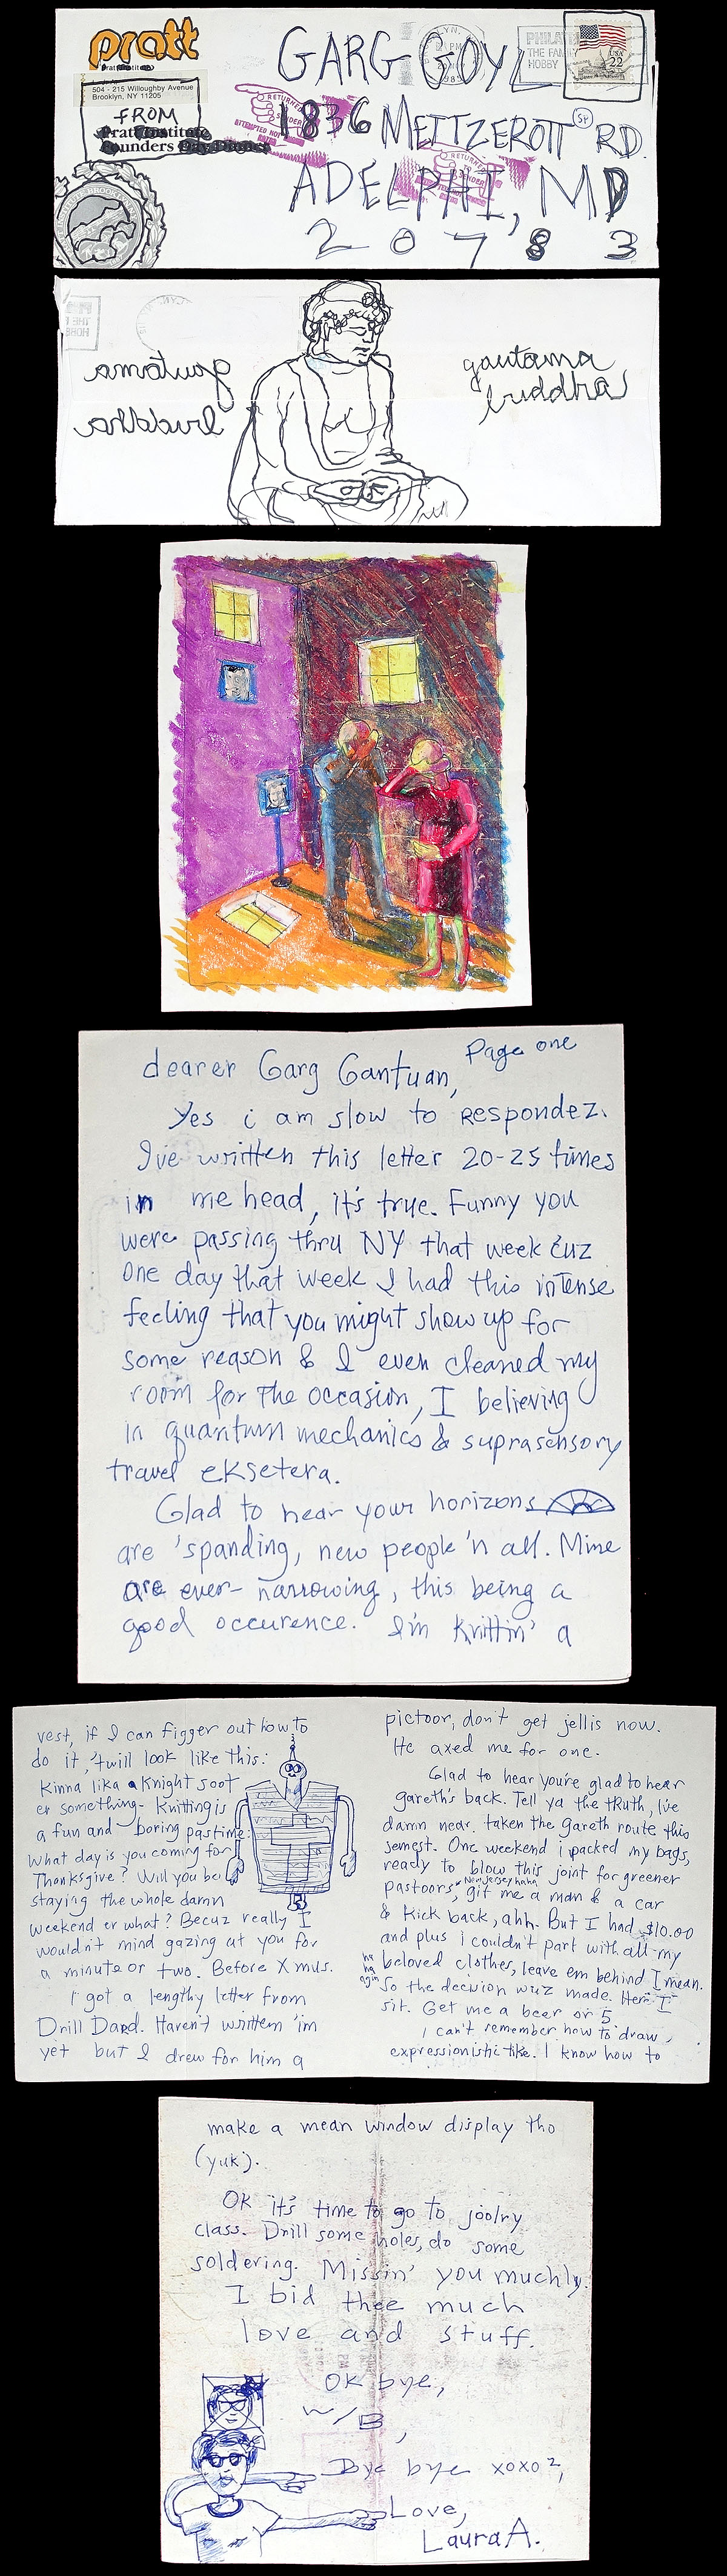 pratt
Pratt Institute
504 - 215 Willoughby Avenue
Brooklyn, NY 11205
FROM
Pratt Institute
Founders Day Dinner
GARG GOYL
1836 METTZEROTT RD.
SP
ADELPHI, MD
2 0 7 8 3
1985
PHILAT
THE FAMI
HOBBY
USA
22
RETURNED
TO
SENDER
ATTEMPTED NOT
RETURNED
TO
SENDER
gautama
buddha
gautama
buddha
Page one
dearer Garg Gantuan,
Yes i am slow to respondez.
I've written this letter 20-25 times
in me head, it's true. Funny you
were passing thru NY that week cuz
one day that week I had this intense
feeling that you might show up for
some reason & I even cleaned my
room for the occasion, I believing
in quantum mechanics & suprasensory
travel eksetera.
Glad to hear your horizons
are 'spanding, new people 'n all. Mine
are ever-narrowing, this being a
good occurence. I'm knittin' a
vest, if I can figger out how to
do it, 'twill look like this:
Kinna lika a Knight soot
er something- Knitting is
a fun and boring pastime.
What day is you coming for
Thanksgive? Will you be
staying the whole damn
weekend er what? Becuz really I
wouldn't mind gazing at you for
a minute or two. Before Xmus.
I got a lengthy letter from
Drill Dard. Haven't written 'im
yet but I drew for him a
pictoor, don't get jellis now.
He axed me for one.
Glad to hear you're glad to hear
gareth's back. Tell ya the truth, I've
damn near taken the Gareth route this
semest. One weekend i packed my bags,
ready to blow this joint for greener
pastoors, New Jersey haha git me a man & a car
& Kick back, ahh. But I had $10.00
and plus i couldn't part with all my
ha ha agin
beloved clothes, leave em behind I mean.
So the decision wuz made. Here I
sit. Get me a beer or 5.
I can't remember how to draw,
expressionistic-like. I know how to
make a mean window display tho
(yuk).
OK it's time to go to joolry
class. Drill some holes, do some
soldering. Missin' you muchly.
I bid thee much
love and stuff.
OK bye,
W/B,
Bye bye xoxo²,
Love,
Laura A.